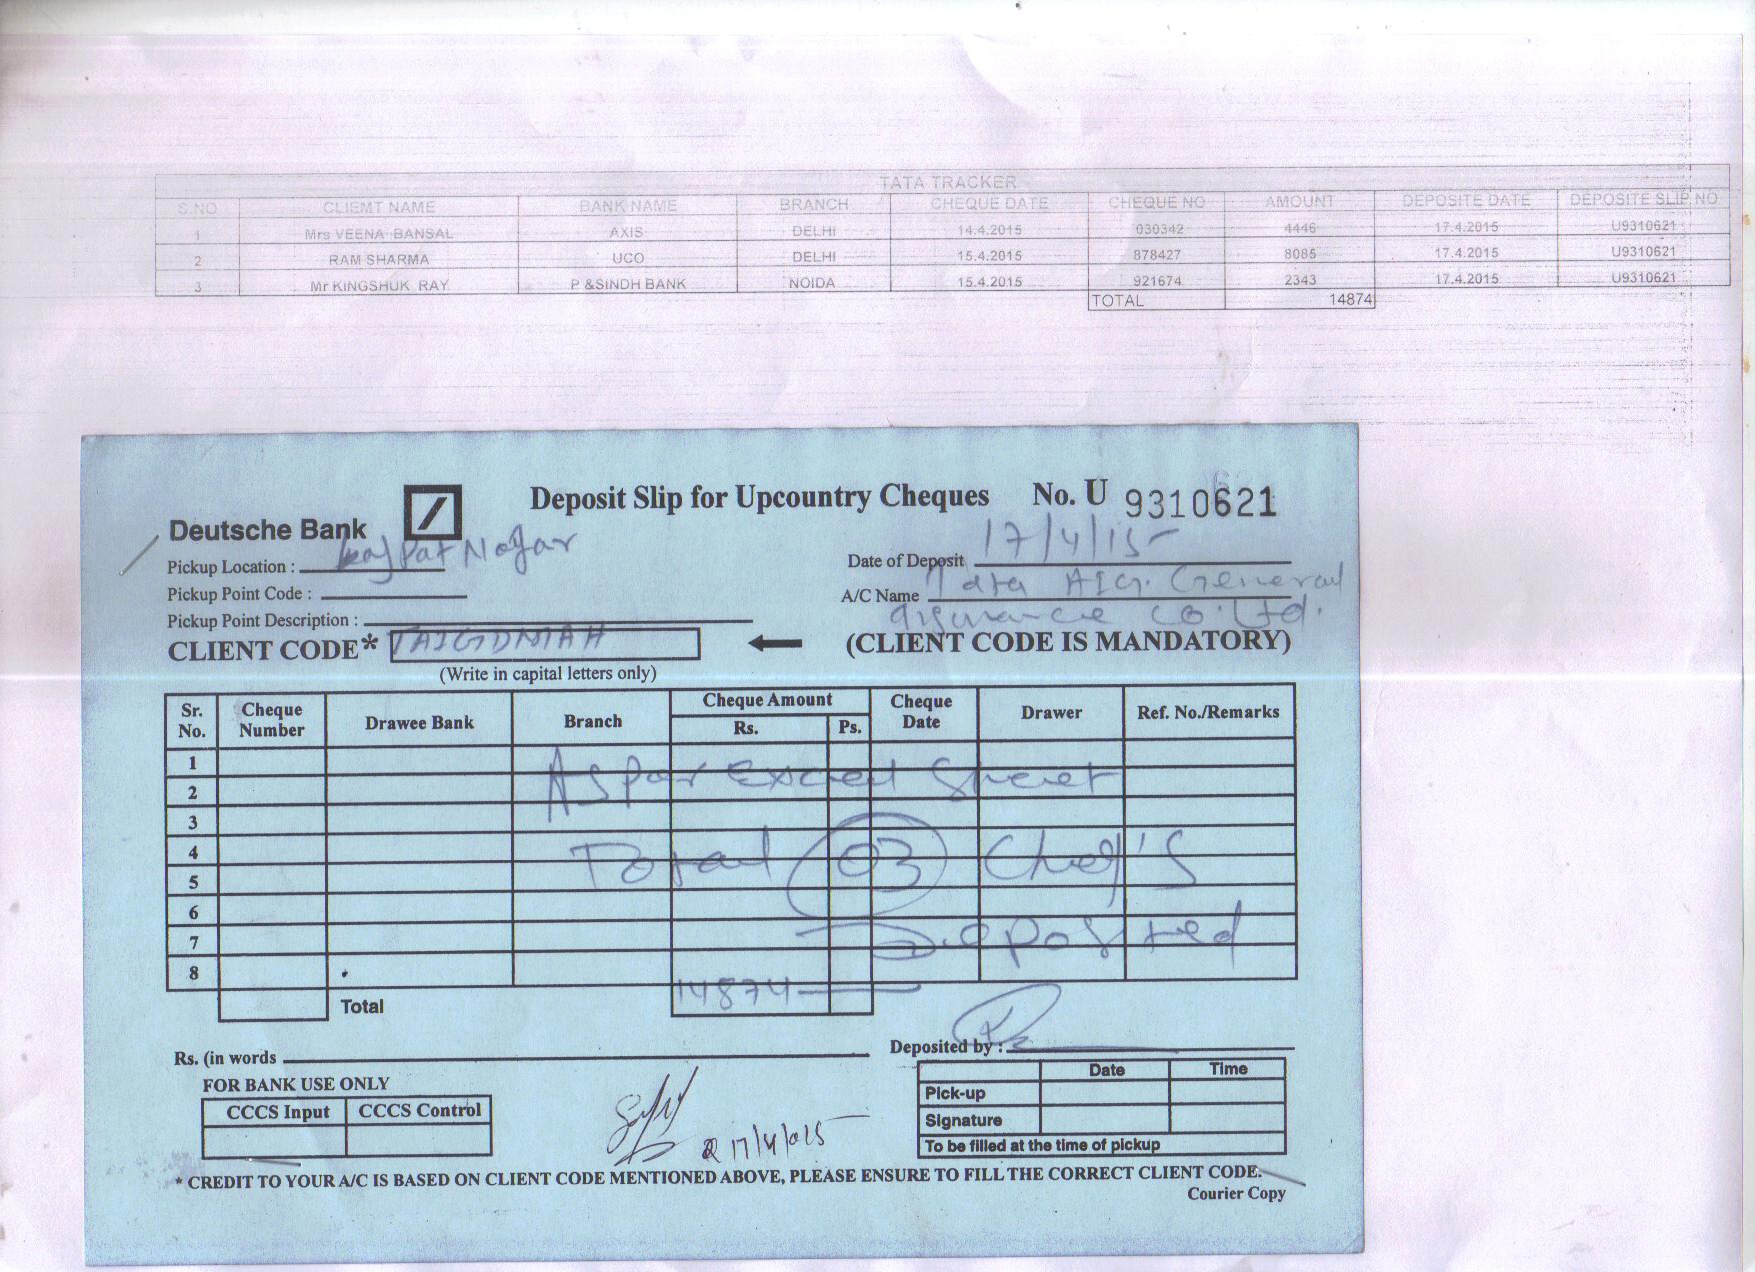 TATA TRACKER
S.NO CLIEMT NAME BANK NAME BRANCH CHEQUE DATE CHEQUE NO AMOUNT DEPOSITE DATE DEPOSITE SLIP NO
1 Mrs VEENA BANSAL AXIS DELHI 14.4.2015 030342 4446 17.4.2015 U9310621
2 RAM SHARMA UCO DELHI 15.4.2015 878427 8085 17.4.2015 U9310621
3 Mr KINGSHUK RAY P &SINDH BANK NOIDA 15.4.2015 921674 2343 17.4.2015 U9310621
TOTAL 14874
Deposit Slip for Upcountry Cheques No. U 9310621
Deutsche Bank
Pickup Location : Lajpat Nagar
Date of Deposit 17/4/15
Pickup Point Code :
A/C Name Tata AIG. General
Pickup Point Description :
Co. Ltd.
CLIENT CODE* TAIGDMAH (CLIENT CODE IS MANDATORY)
(Write in capital letters only)
Sr. No. Cheque Number Drawee Bank Branch Cheque Amount Rs. Ps. Cheque Date Drawer Ref. No./Remarks
1
2
3
4
5
6
7
8
As par Excel Sheet
Total 03 Cheq's
Deposited
Total 14874
Rs. (in words
Deposited by :
FOR BANK USE ONLY
CCCS Input CCCS Control
Date Time
Pick-up
Signature
To be filled at the time of pickup
17/4/015
* CREDIT TO YOUR A/C IS BASED ON CLIENT CODE MENTIONED ABOVE, PLEASE ENSURE TO FILL THE CORRECT CLIENT CODE.
Courier Copy